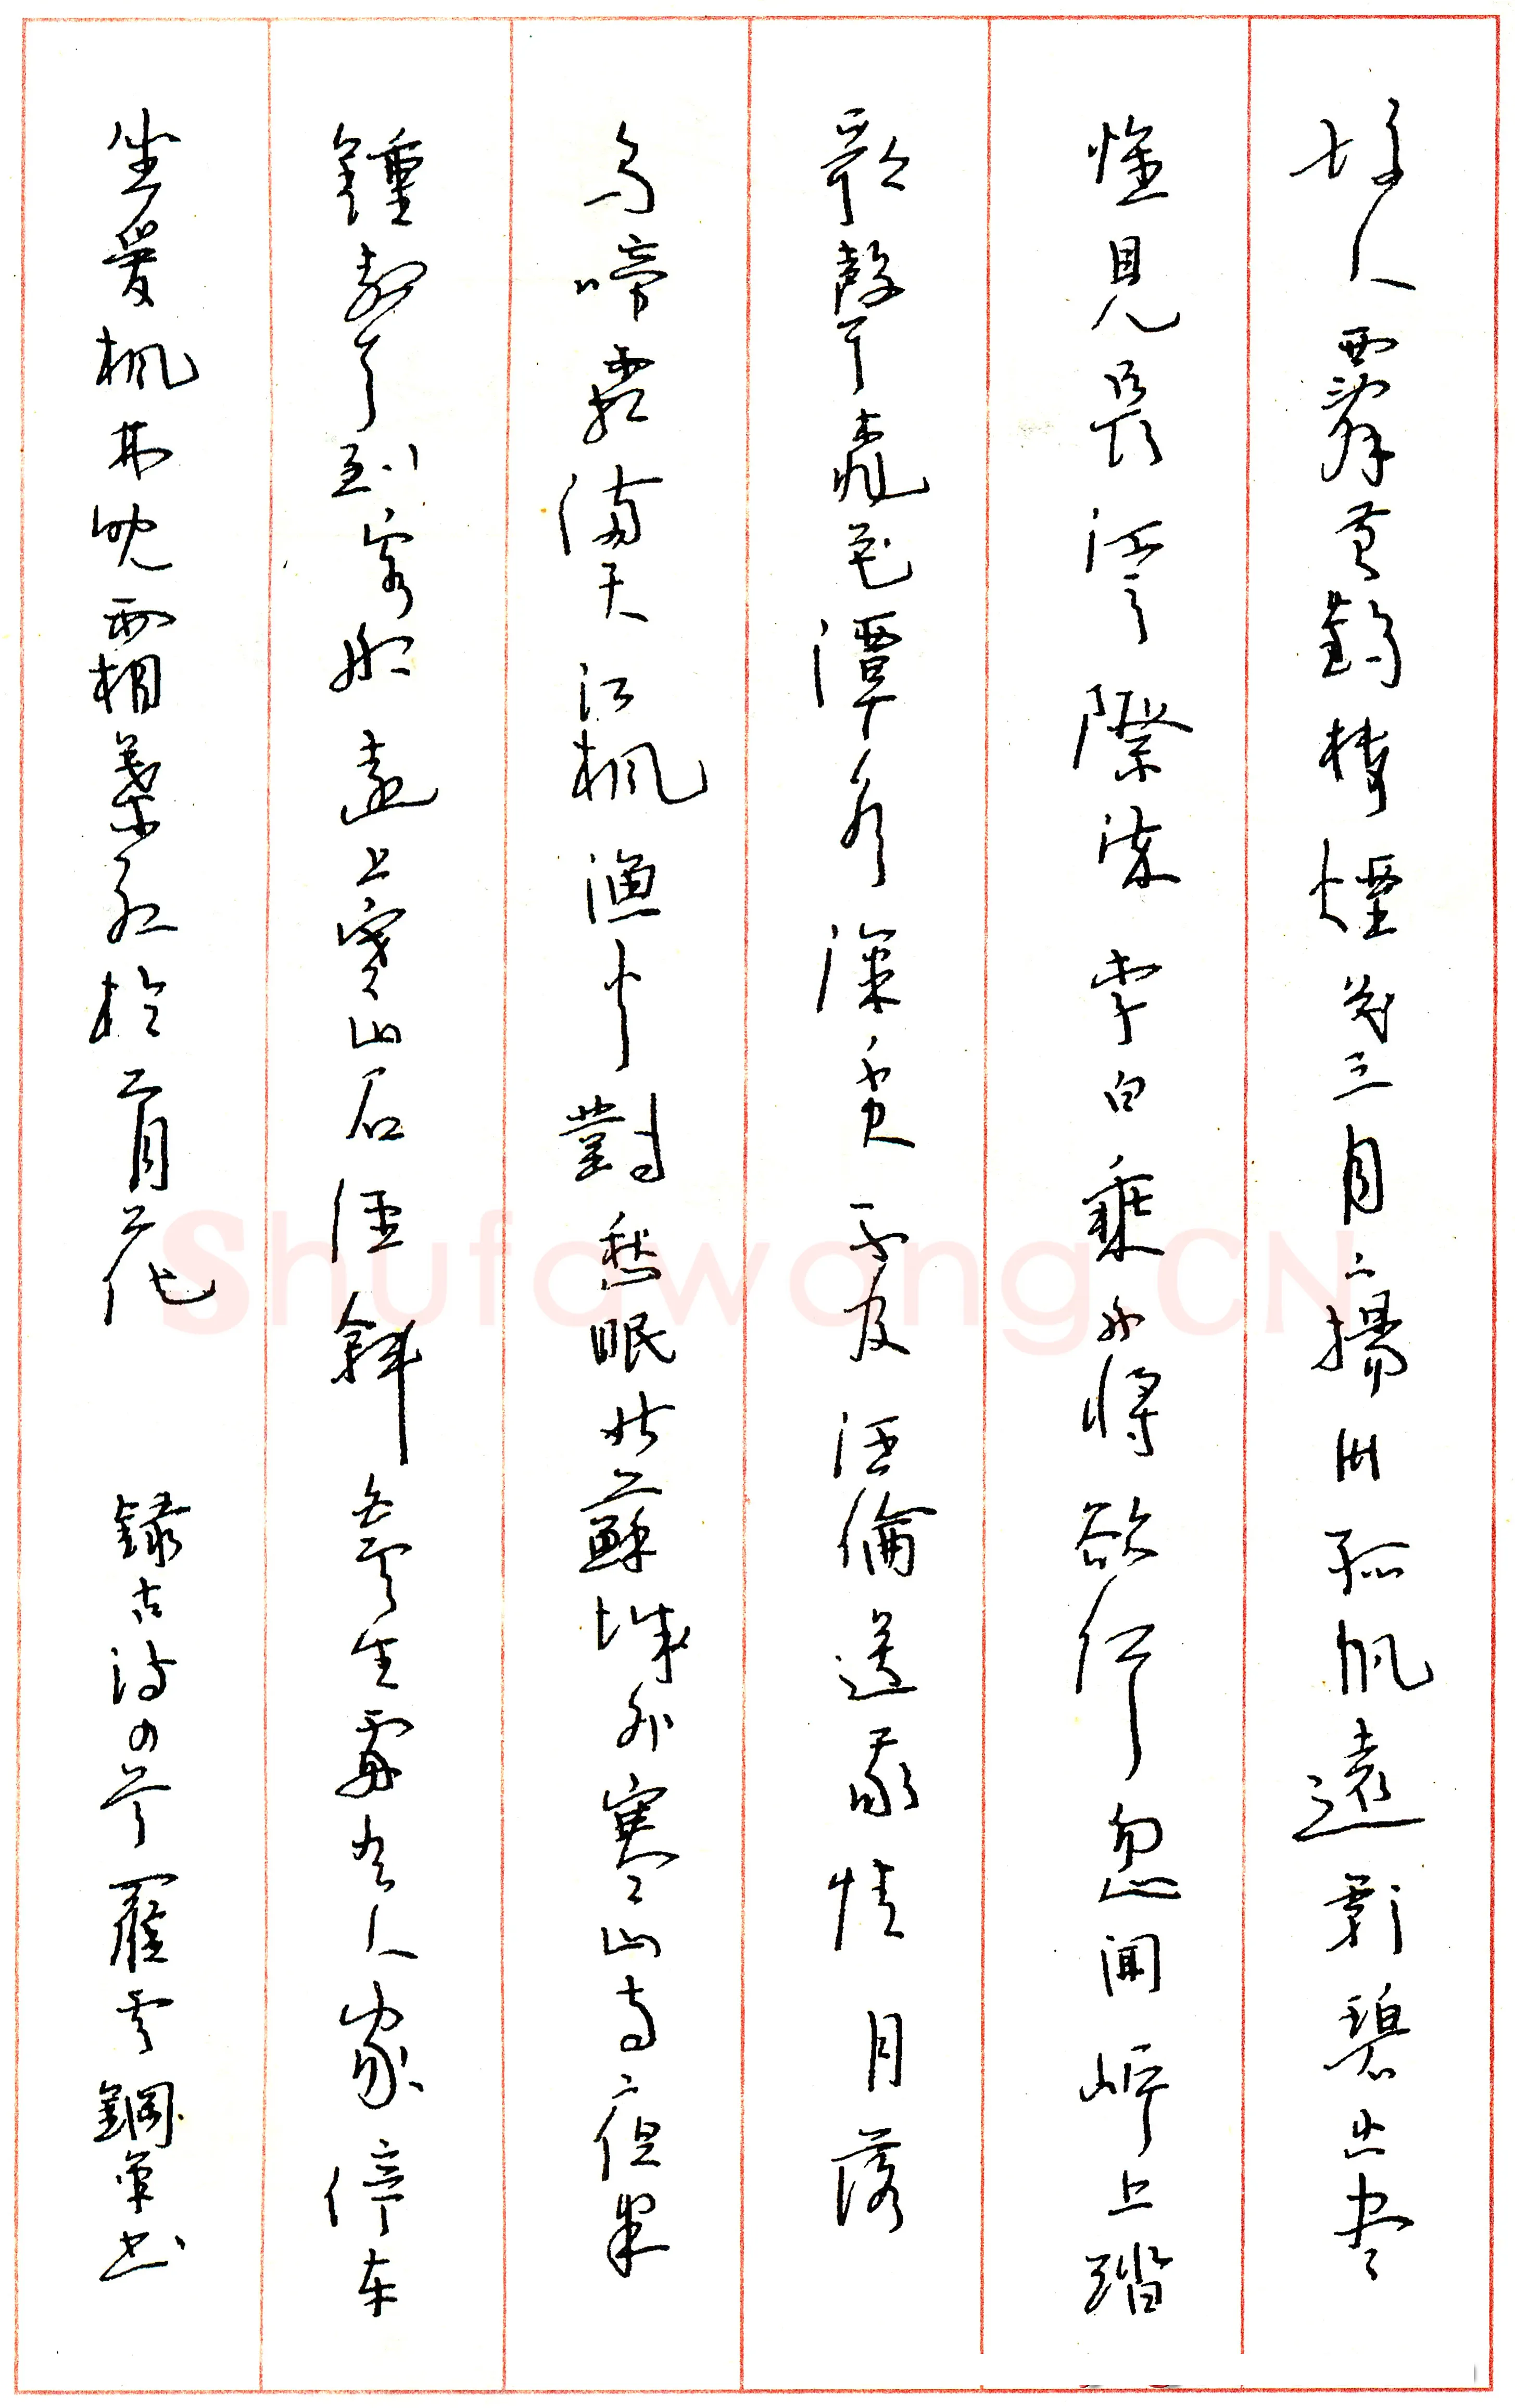 故人西辭黄鶴樓煙花三月下揚州孤帆遠影碧山尽
惟見長江天際流李白乘舟將欲行忽聞岸上踏
歌聲桃花潭水深千尺不及汪倫送我情月落
烏啼霜滿天江楓漁火對愁眠姑蘇城外寒山寺夜半
鐘聲到客船遠上寒山石徑斜白雲生處有人家停车
坐愛楓林晚霜葉紅於二月花 錄古詩四首 鋼筆书
Shufawang.CN